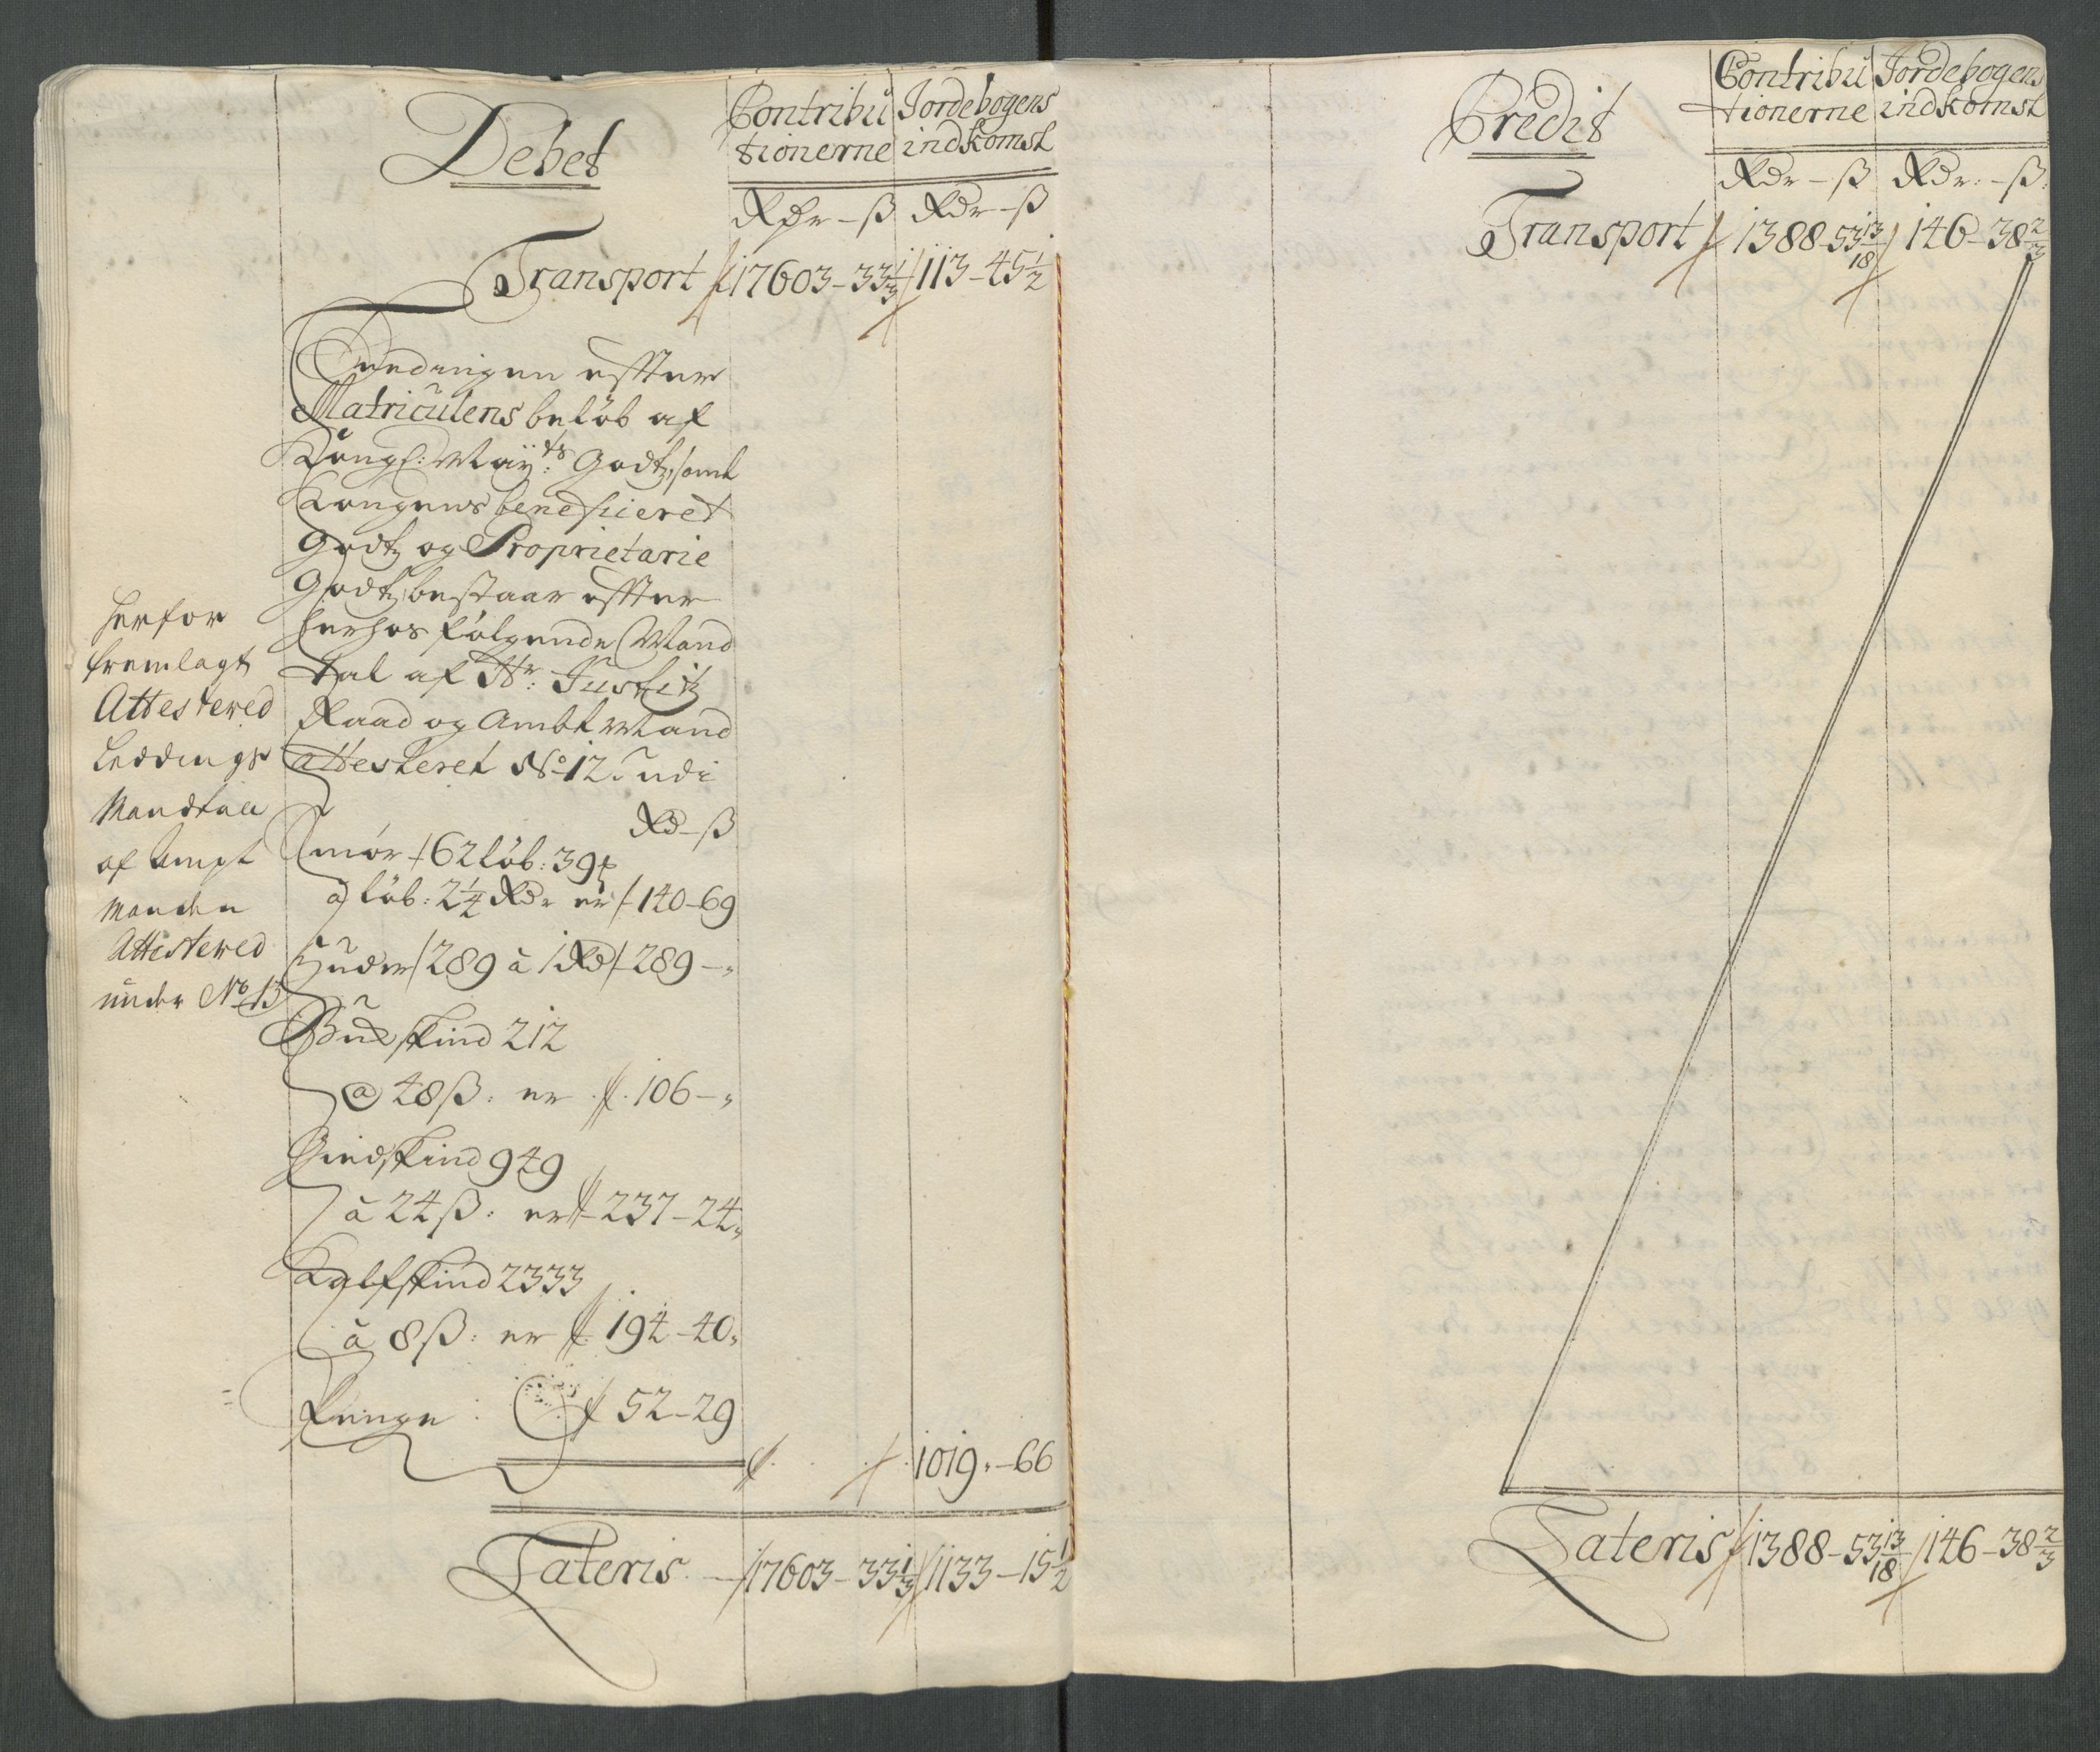 Debet
Contribu
tionerne
Jordebogens
indkomst
Rdr - ß
Rdr - ß
Transport 17603 - 33 1/3
113 - 45 1/2
Leedingen effter
Matriculens beløb af
Kongl: Maÿts: Godtz, samt
Kongens beneficieret
Godtz og Proprietarie
Godtz, bestaar effter
herhos følgende Mand
tal af Hr: Justitz
Raad og Ambtmand
attesteret No 12
Rd - ß
Smør 62 løb: 39
a løb: 2 1/4 Rdr er 140 - 69
Huder 289 à 1 Rd 289 - "
Buckskind 212
@ 48 ß: er 106 - "
Giedskind 949
à 24 ß: er 237 - 24
Kalfskind 2333
à 8 ß: er 194 - 40
Penge: 52 - 29
1019 - 66
Lateris 17603 - 33 1/3
1133 - 15 1/2
herfor
fremlagt
Attestered
Leddings
Mandtall
af Ampt
Manden
Attestered
under No 13
Credit
Contribu
tionerne
Jordebogens
indkomst
Rdr - ß
Rdr: - ß:
Transport 1388 - 53 13/18
146 - 38 2/3
Lateris 1388 - 53 13/18
146 - 38 2/3